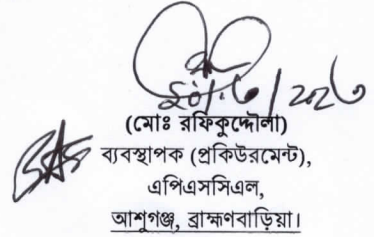 (মোঃ রফিকুদ্দৌলা)
ব্যবস্থাপক (প্রকিউরমেন্ট),
এপিএসসিএল,
আশুগঞ্জ, ব্রাহ্মণবাড়িয়া।